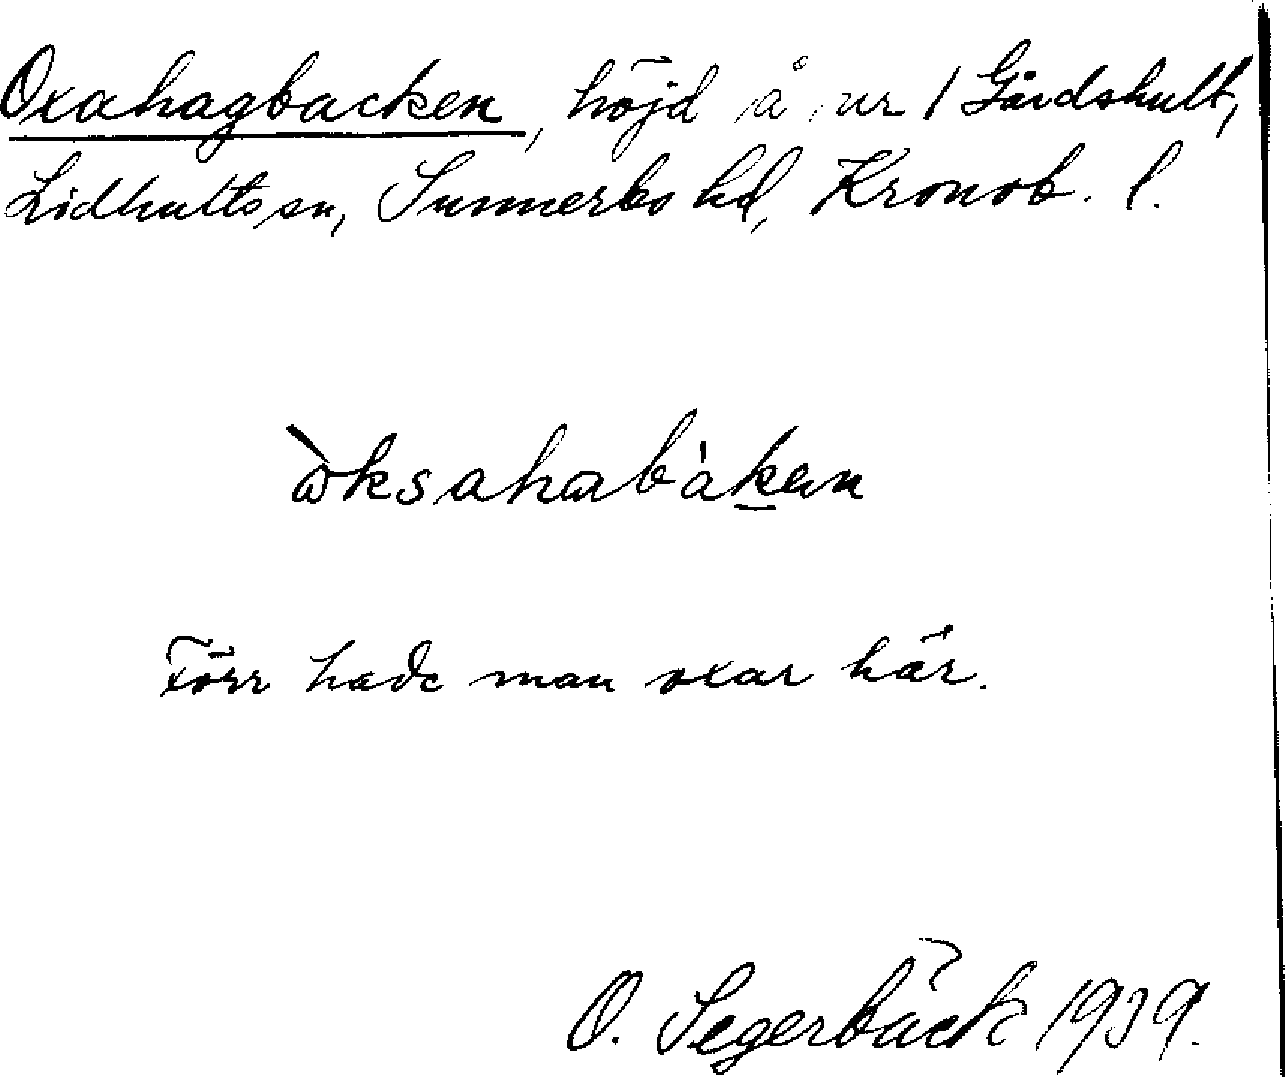 Oxahagbacken, höjd å nr 1 Gårdshult,
Lidhults sn, Sunnerbo hd, Kronob. l.
ὼksahabàken
Förr hade man oxar här.
O. Segerbäck 1939.